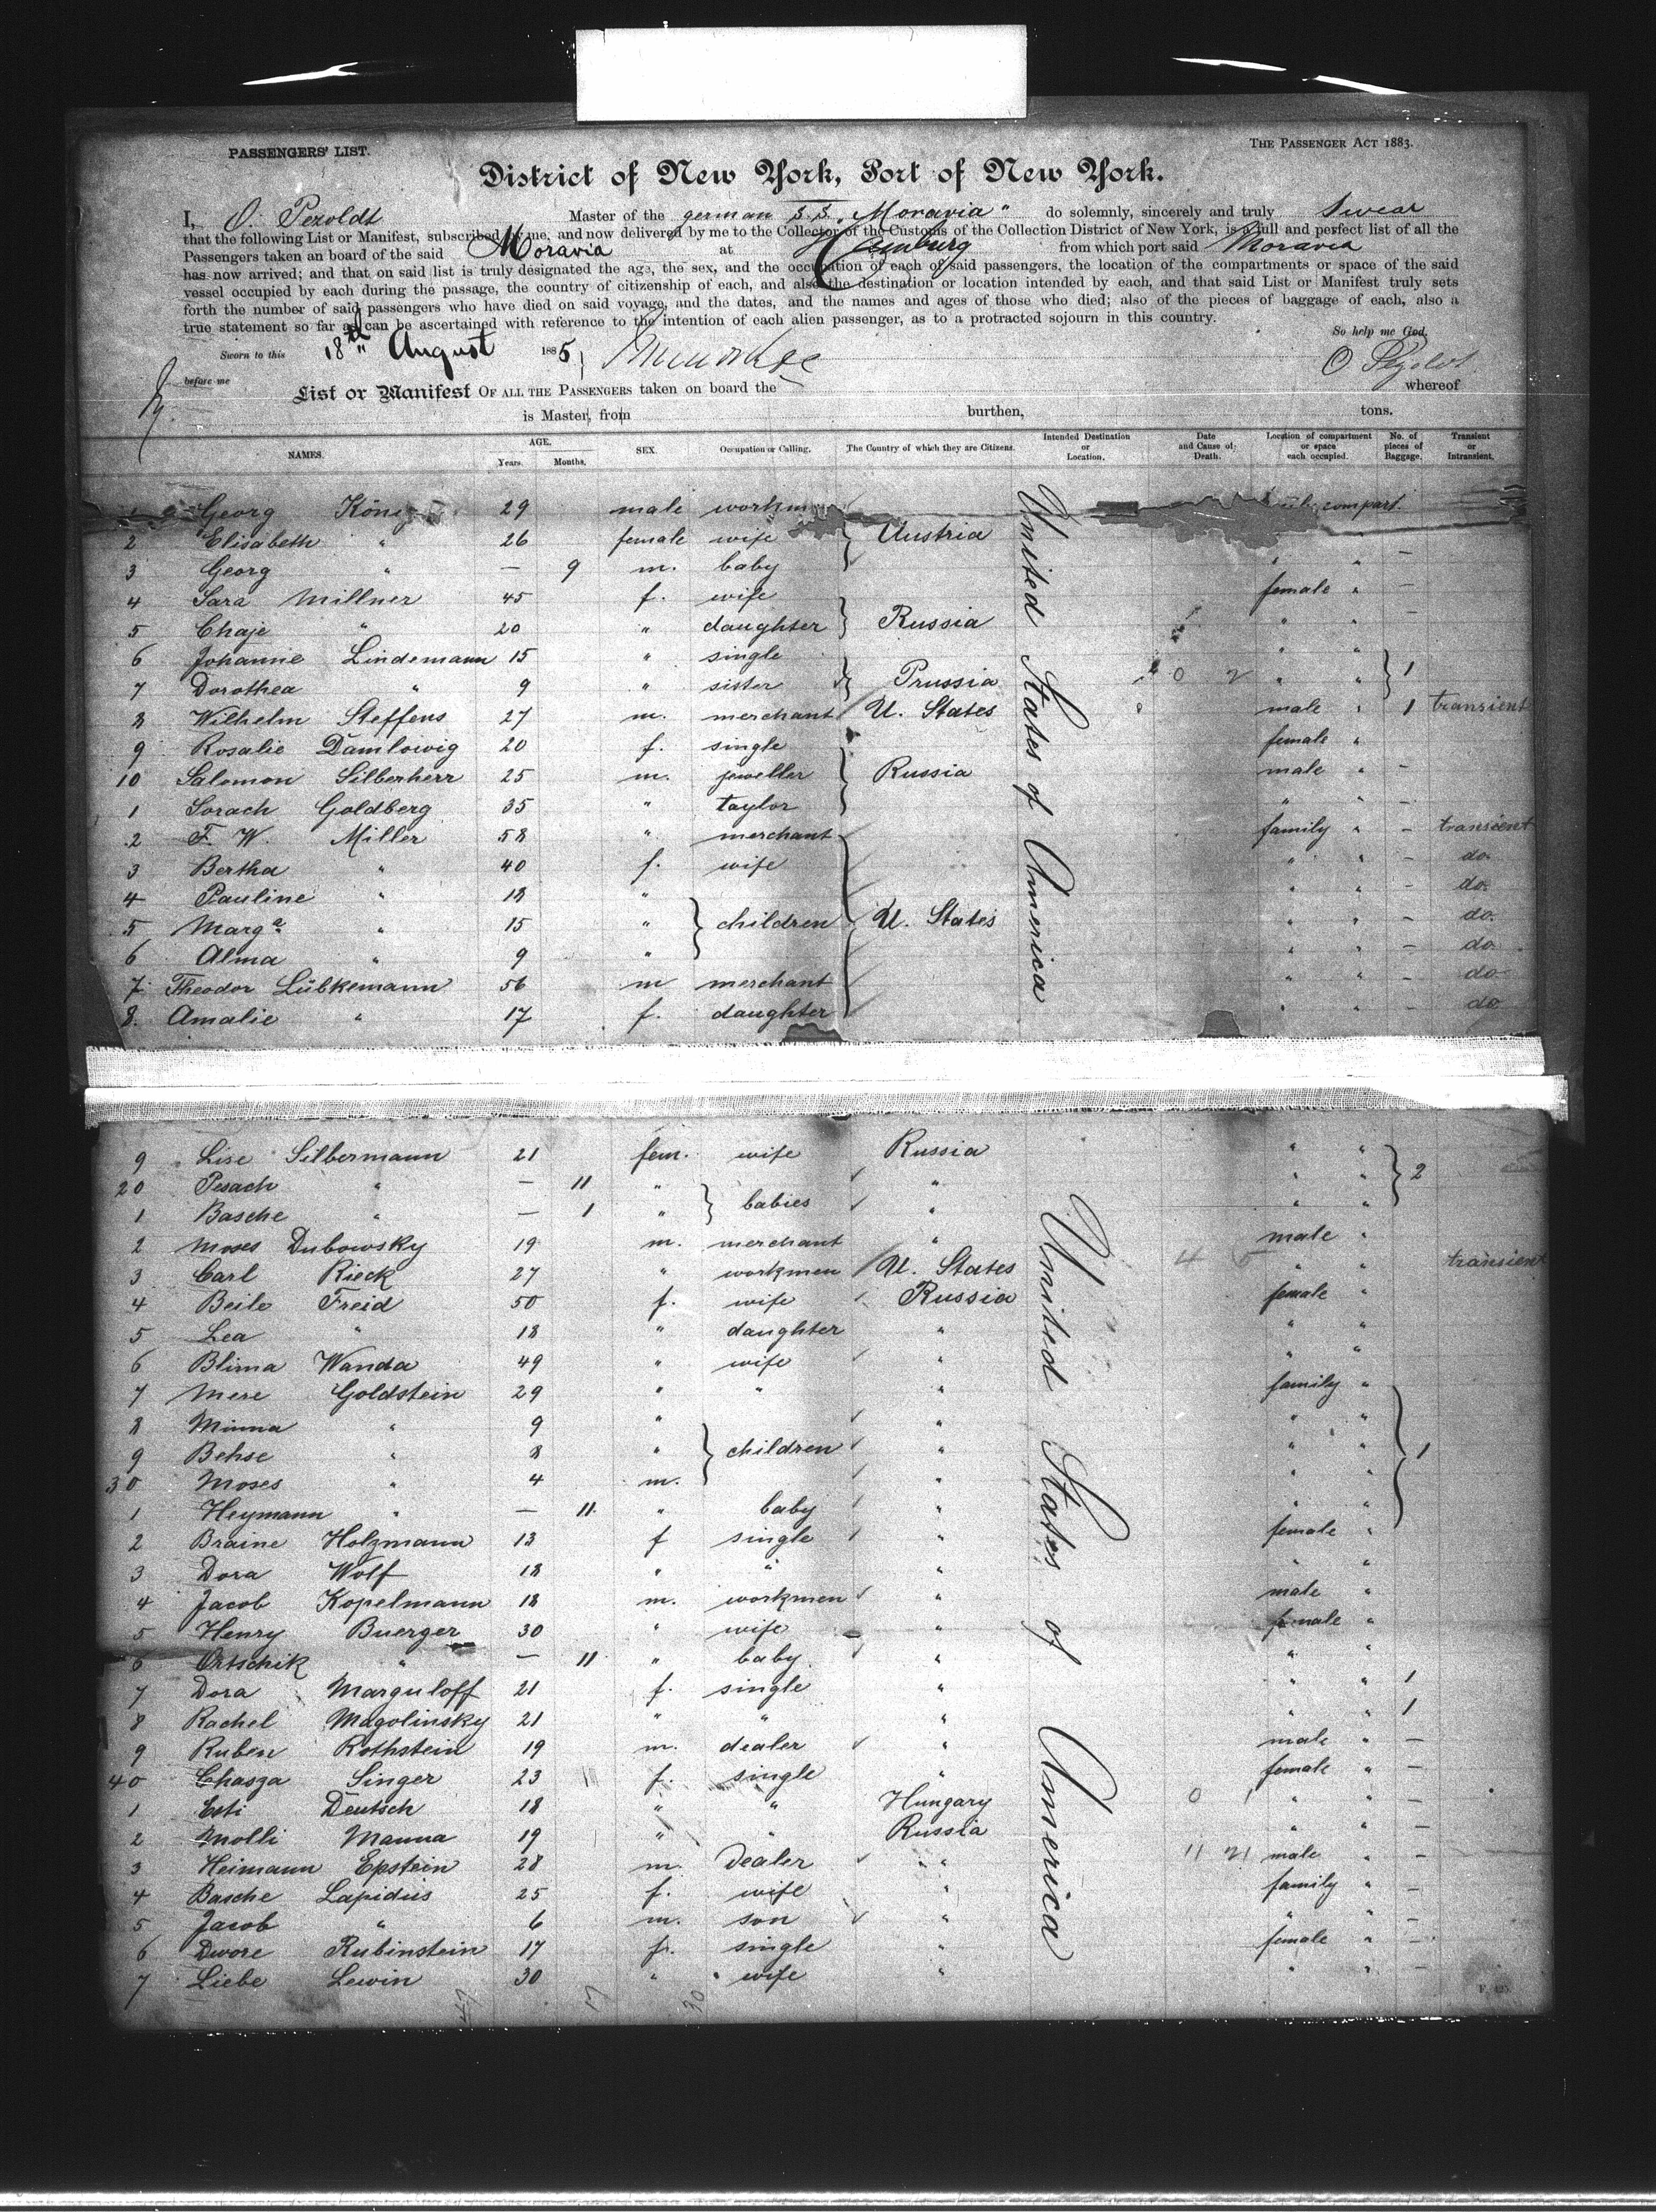 PASSENGERS' LIST.
THE PASSENGER ACT 1883.
District of New York, Port of New York.
I, O. Pezoldt Master of the german S.S. "Moravia" do solemnly, sincerely and truly swear
that the following List or Manifest, subscribed by me, and now delivered by me to the Collector of the Customs of the Collection District of New York, is a full and perfect list of all the
Passengers taken an board of the said Moravia at Hamburg from which port said Moravia
has now arrived; and that on said list is truly designated the age, the sex, and the occupation of each of said passengers, the location of the compartments or space of the said
vessel occupied by each during the passage, the country of citizenship of each, and also the destination or location intended by each, and that said List or Manifest truly sets
forth the number of said passengers who have died on said voyage, and the dates, and the names and ages of those who died; also of the pieces of baggage of each, also a
true statement so far as can be ascertained with reference to the intention of each alien passenger, as to a protracted sojourn in this country.
So help me God,
Sworn to this 18th August 1885
O Pezoldt
before me
List or Manifest OF ALL THE PASSENGERS taken on board the whereof
is Master, from burthen, tons.
NAMES. AGE. Years. Months. SEX. Occupation or Calling. The Country of which they are Citizens. Intended Destination or Location. Date and Cause of Death. Location of compartment or space each occupied. No. of pieces of Baggage. Transient or Intransient.
United States of America
1 Georg König 29 male workm compart.
2 Elisabeth " 26 female wife Austria " " —
3 Georg " — 9 m. baby " "
4 Sara Millner 45 f. wife female " —
5 Chaje " 20 " daughter Russia " " —
6 Johanne Lindemann 15 " single " "
7 Dorothea " 9 " sister Prussia 0 2 " " 1
8 Wilhelm Steffens 27 m. merchant U. States male " 1 transient
9 Rosalie Damlowig 20 f. single female "
10 Salomon Silberherr 25 m. jeweller Russia male " —
1 Sorach Goldberg 35 " taylor " " —
2 F. W. Miller 58 " merchant family " — transient
3 Bertha " 40 f. wife " " — do.
4 Pauline " 18 " " " — do.
5 Marga " 15 " children U. States " " — do.
6 Alma " 9 " " " — do
7 Theodor Lübkemann 56 m merchant " " — do
8. Amalie " 17 f. daughter " " do
9 Lise Silbermann 21 fem. wife Russia " "
20 Pesach " — 11 " " " " 2
1 Basche " — 1 " babies " " "
2 Moses Dubowsky 19 m. merchant " male "
3 Carl Rieck 27 " workmen U. States 4 5 " " transient
4 Beile Freid 50 f. wife Russia female "
5 Lea " 18 " daughter " " "
6 Blima Wanda 49 " wife " " "
7 Mere Goldstein 29 " " " family "
8 Minna " 9 " " " "
9 Behse " 8 " children " " " 1
30 Moses " 4 m. " " "
1 Heymann " — 11. " baby " " "
2 Braine Holzmann 13 f single " female "
3 Dora Wolf 18 " " " " "
4 Jacob Kopelmann 18 m. workmen " male "
5 Henry Buerger 30 " wife " female "
6 Ortschik " — 11 " baby " " "
7 Dora Marguloff 21 f. single " " " 1
8 Rachel Magolinsky 21 " " " " " 1
9 Ruben Rothstein 19 m. dealer " male " —
40 Chasza Singer 23 f. single " female " —
1 Esti Deutsch 18 " " Hungary 0 1 " " —
2 Molli Manna 19 " " Russia " " —
3 Heimann Epstein 28 m. Dealer " 11 21 male " —
4 Basche Lapidus 25 f. wife " family " —
5 Jacob " 6 m. son " " " —
6 Dwore Rubinstein 17 f. single " female " —
7 Liebe Lewin 30 " wife " " " —
United States of America
47 17 30